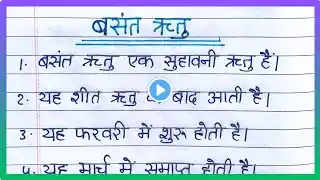 बसंत ऋतु
1. बसंत ऋतु एक सुहावनी ऋतु हैं।
2. यह शीत ऋतु बाद आती है।
3. यह फरवरी में शुरू होती है।
4. यह मार्च में समाप्त होती है।